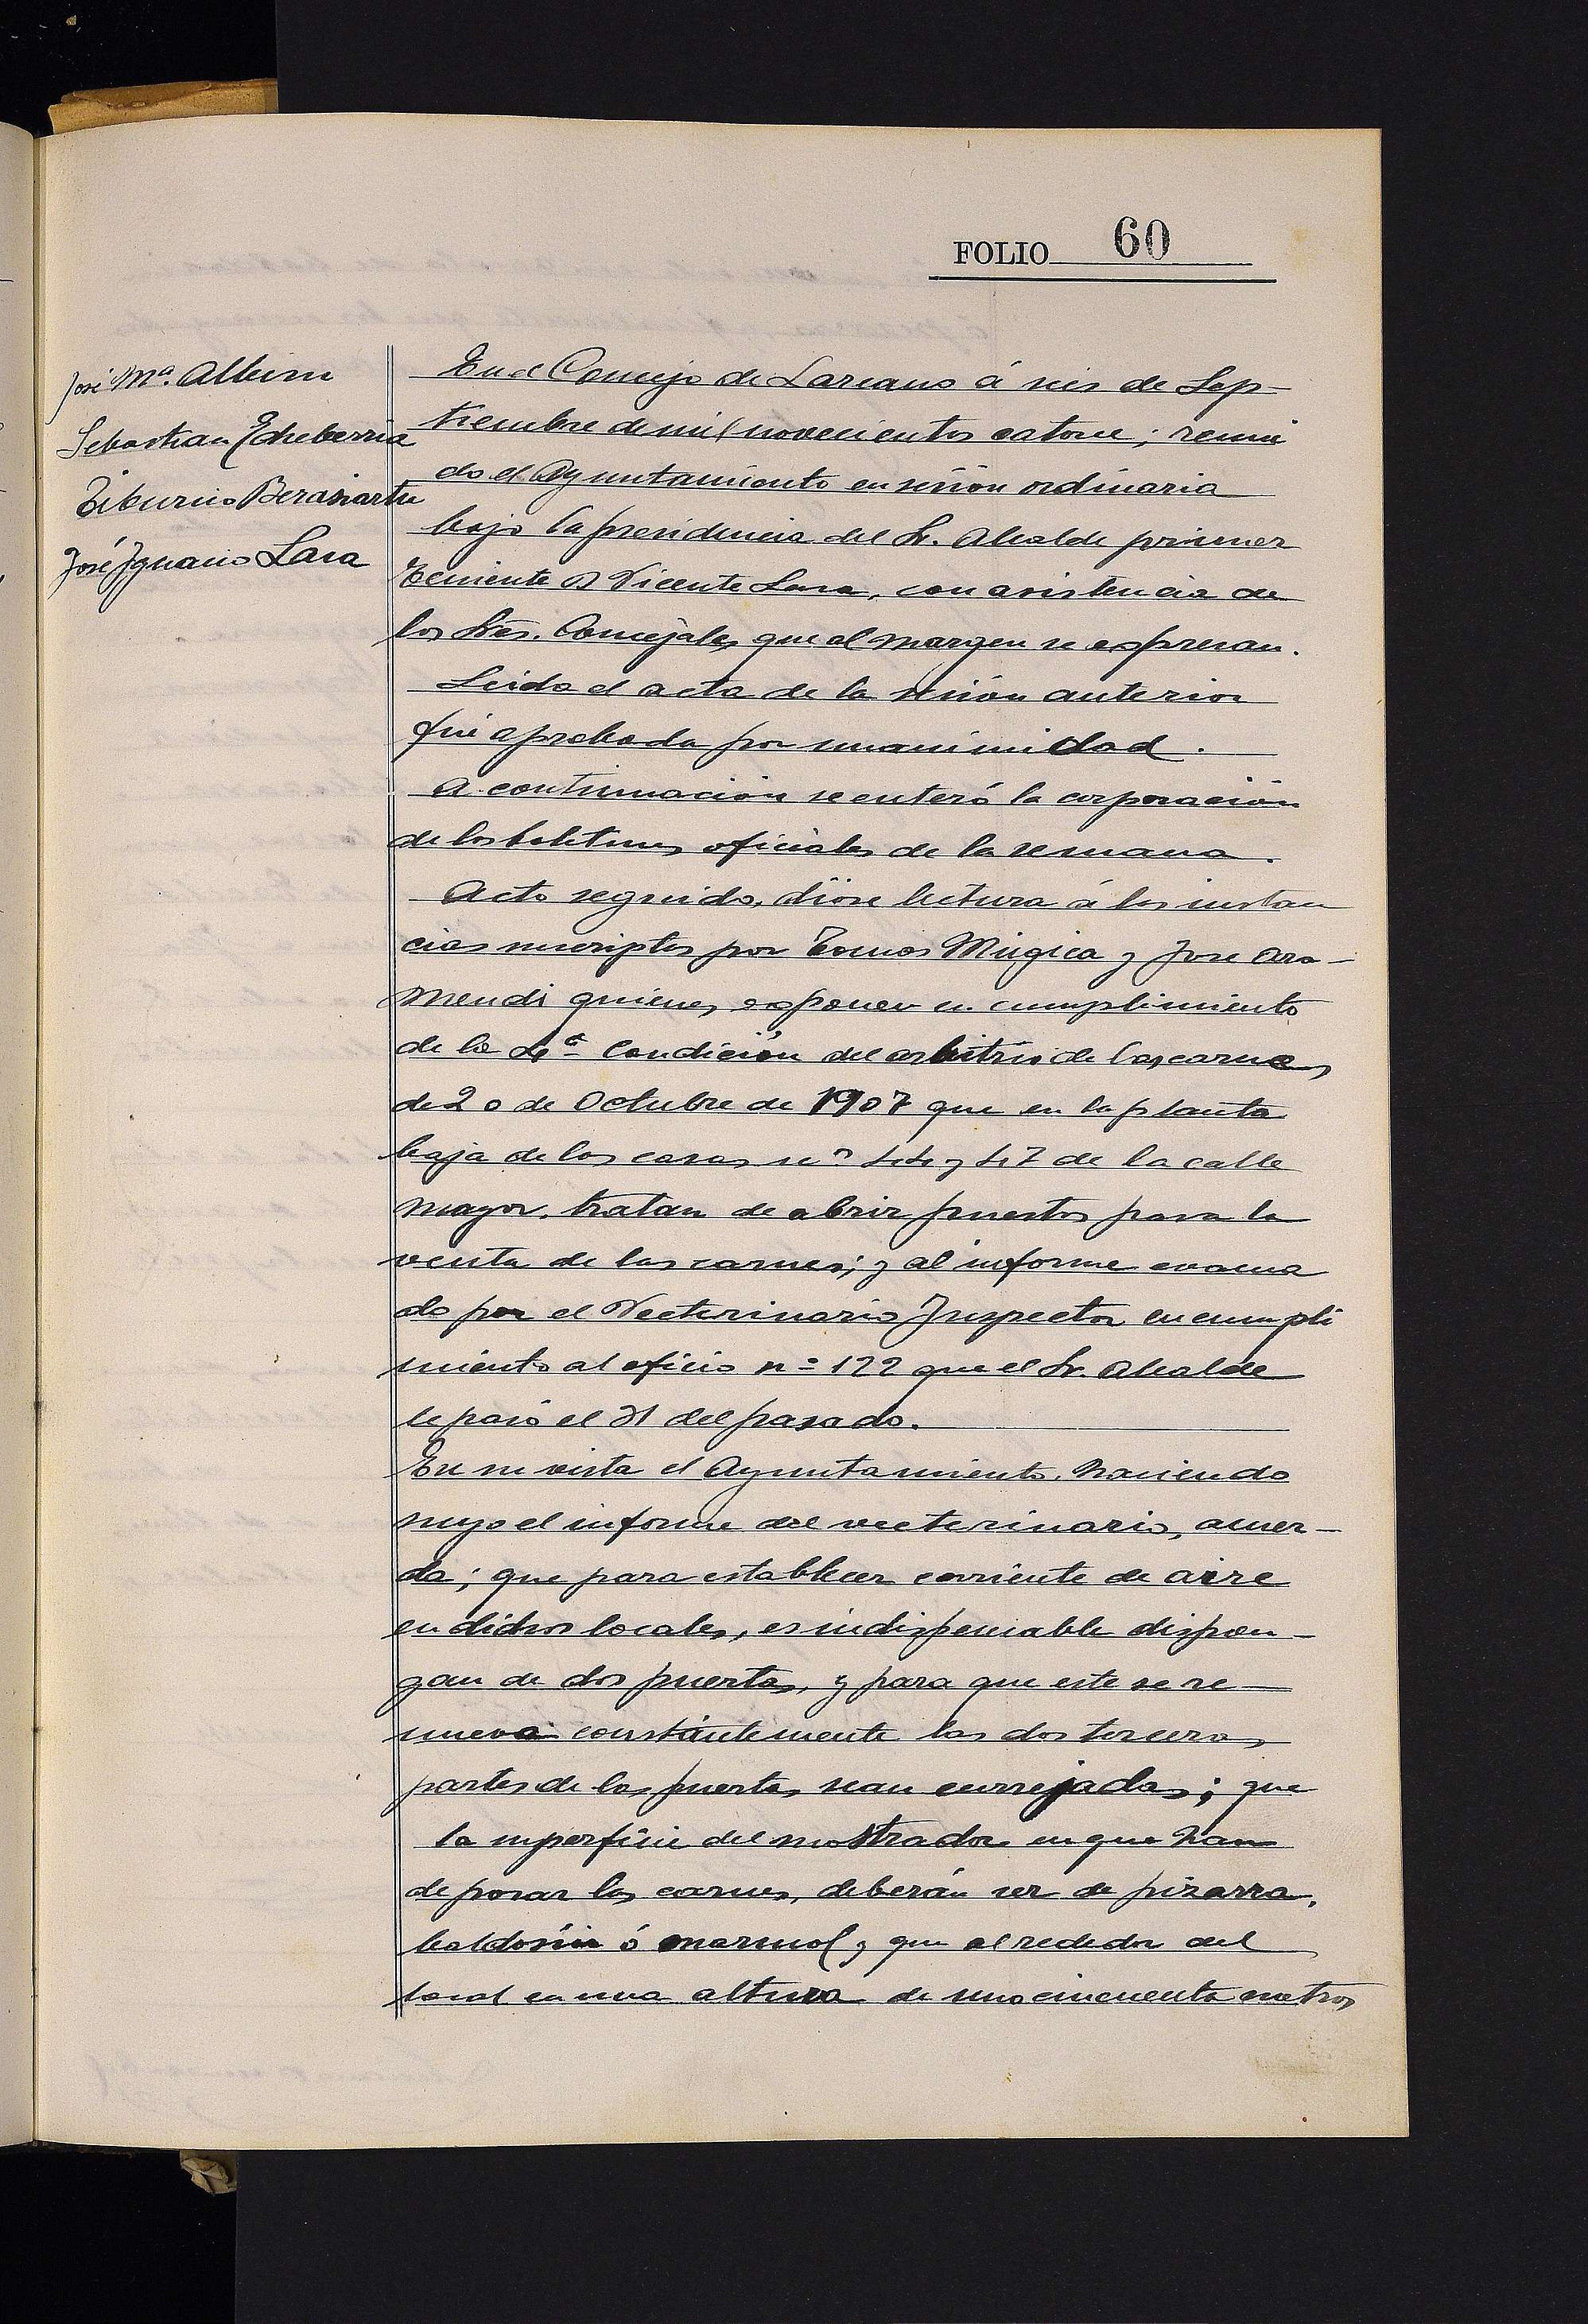 FOLIO 60
José Mª. Albisu
Sebastian Echeberria
Tiburcio Berasiartu
José Ignacio Lasa
En el Concejo de Lazcano á seis de Sep-
tiembre de mil novecientos catorce; reuni
do el Ayuntamiento en sesión ordinaria
bajo la presidencia del Sr. Alcalde primer
Teniente D Vicente Lasa, con asistencia de
los Sres. Concejales que al margen se expresan.
Leida el acta de la sesión anterior
fué aprobada por unanimidad.
A continuación se enteró la corporación
de los boletines oficiales de la semana.
Acto seguido, dióse lectura á las instan
cias suscriptas por Tomas Múgica y Jose Ara-
mendi quienes exponen en cumplimiento
de la 4ª condición del arbitrio de las carnes
de 20 de Octubre de 1907 que en la planta
baja de las casas nº 44 y 47 de la calle
mayor, tratan de abrir puestos para la
venta de las carnes; y al informe evacua
do por el Vecterinario Inspector en cumpli
miento al oficio nº 122 que el Sr. Alcalde
le pasó el 31 del pasado.
En su vista el Ayuntamiento, haciendo
suyo el informe del vecterinario, acuer-
da; que para establecer corriente de aire
en dichos locales, es indispensable dispon-
gan de dos puertas, y para que este se re-
nueva constantemente las dos terceras
partes de las puertas sean enrejadas; que
la superficie del mostrador en que han
de posar las carnes, deberán ser de pizarra,
baldosin ó marmol y que alrededor del
local en una altura de uno cincuenta metros